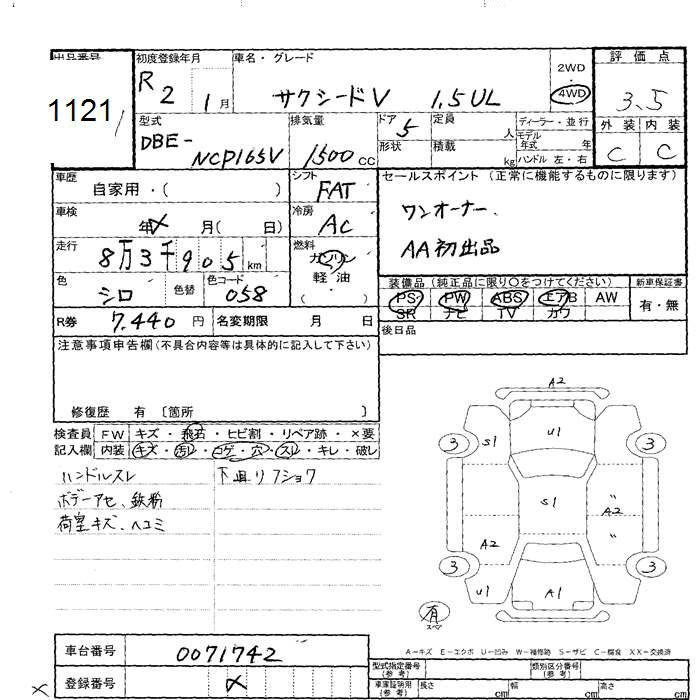 出品番号
1121
初度登録年月
R2
1月
車名・グレード
サクシードV 1.5UL
2WD
・
4WD
評価点
3.5
外装 内装
C C
型式
DBE-
NCP165V
排気量
1500 CC
ドア
5
形状
定員
人
積載
kg
ディーラー・並行
モデル
年式 年
ハンドル 左・右
車歴
自家用・( )
シフト
FAT
セールスポイント (正常に機能するものに限ります)
ワンオーナー.
AA初出品
車検
年 月( 日)
冷房
AC
走行
8万3千905km
燃料
ガソリン
軽油
( )
色
シロ
色替
色コード
058
装備品 (純正品に限り○をつけてください)
PS PW ABS エアB AW
SR ナビ TV カワ
新車保証書
有・無
R券 7.440円
名変期限 月 日
後日品
注意事項申告欄(不具合内容等は具体的に記入して下さい)
修復歴 有 〔箇所 〕
検査員 FW キズ・飛石・ヒビ割・リペア跡・×要
記入欄 内装 キズ・汚レ・コゲ・穴・スレ・キレ・破レ
ハンドルスレ
ボデーアセ、鉄粉
荷室キズ、ヘコミ
下廻りフショク
A2
3 S1 U1 3
S1
A2
A2
3 3
U1 A1
有
スペア
A－キズ E－エクボ U－凹み W－補修跡 S－サビ C－腐食 XX－交換済
車台番号 0071742
登録番号 ×
型式指定番号
(参考)
類別区分番号
(参考)
車庫証明用
(参考)
長さ cm
幅 cm
高さ cm
×